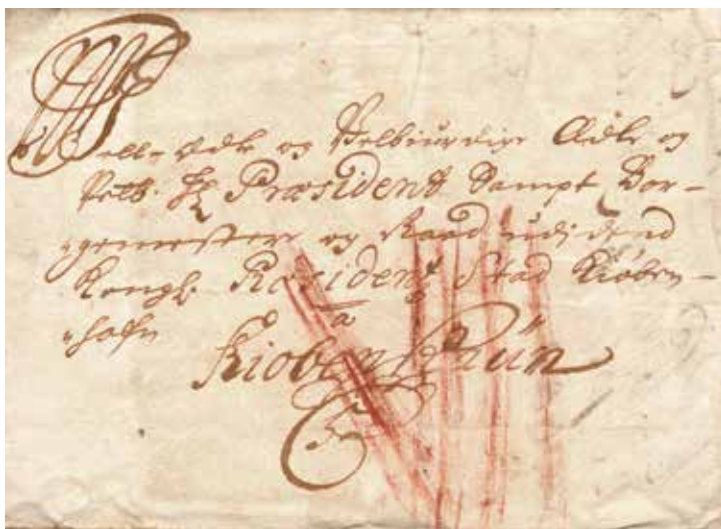 Welle Edle og Velbiurdige Ædle og
Velb. Hr. Præsident Sampt Bor-
gemestere og Raad udi dend
Kongl. Residentz Stad Kiøben-
hafn
a
Kiøbenhaffn